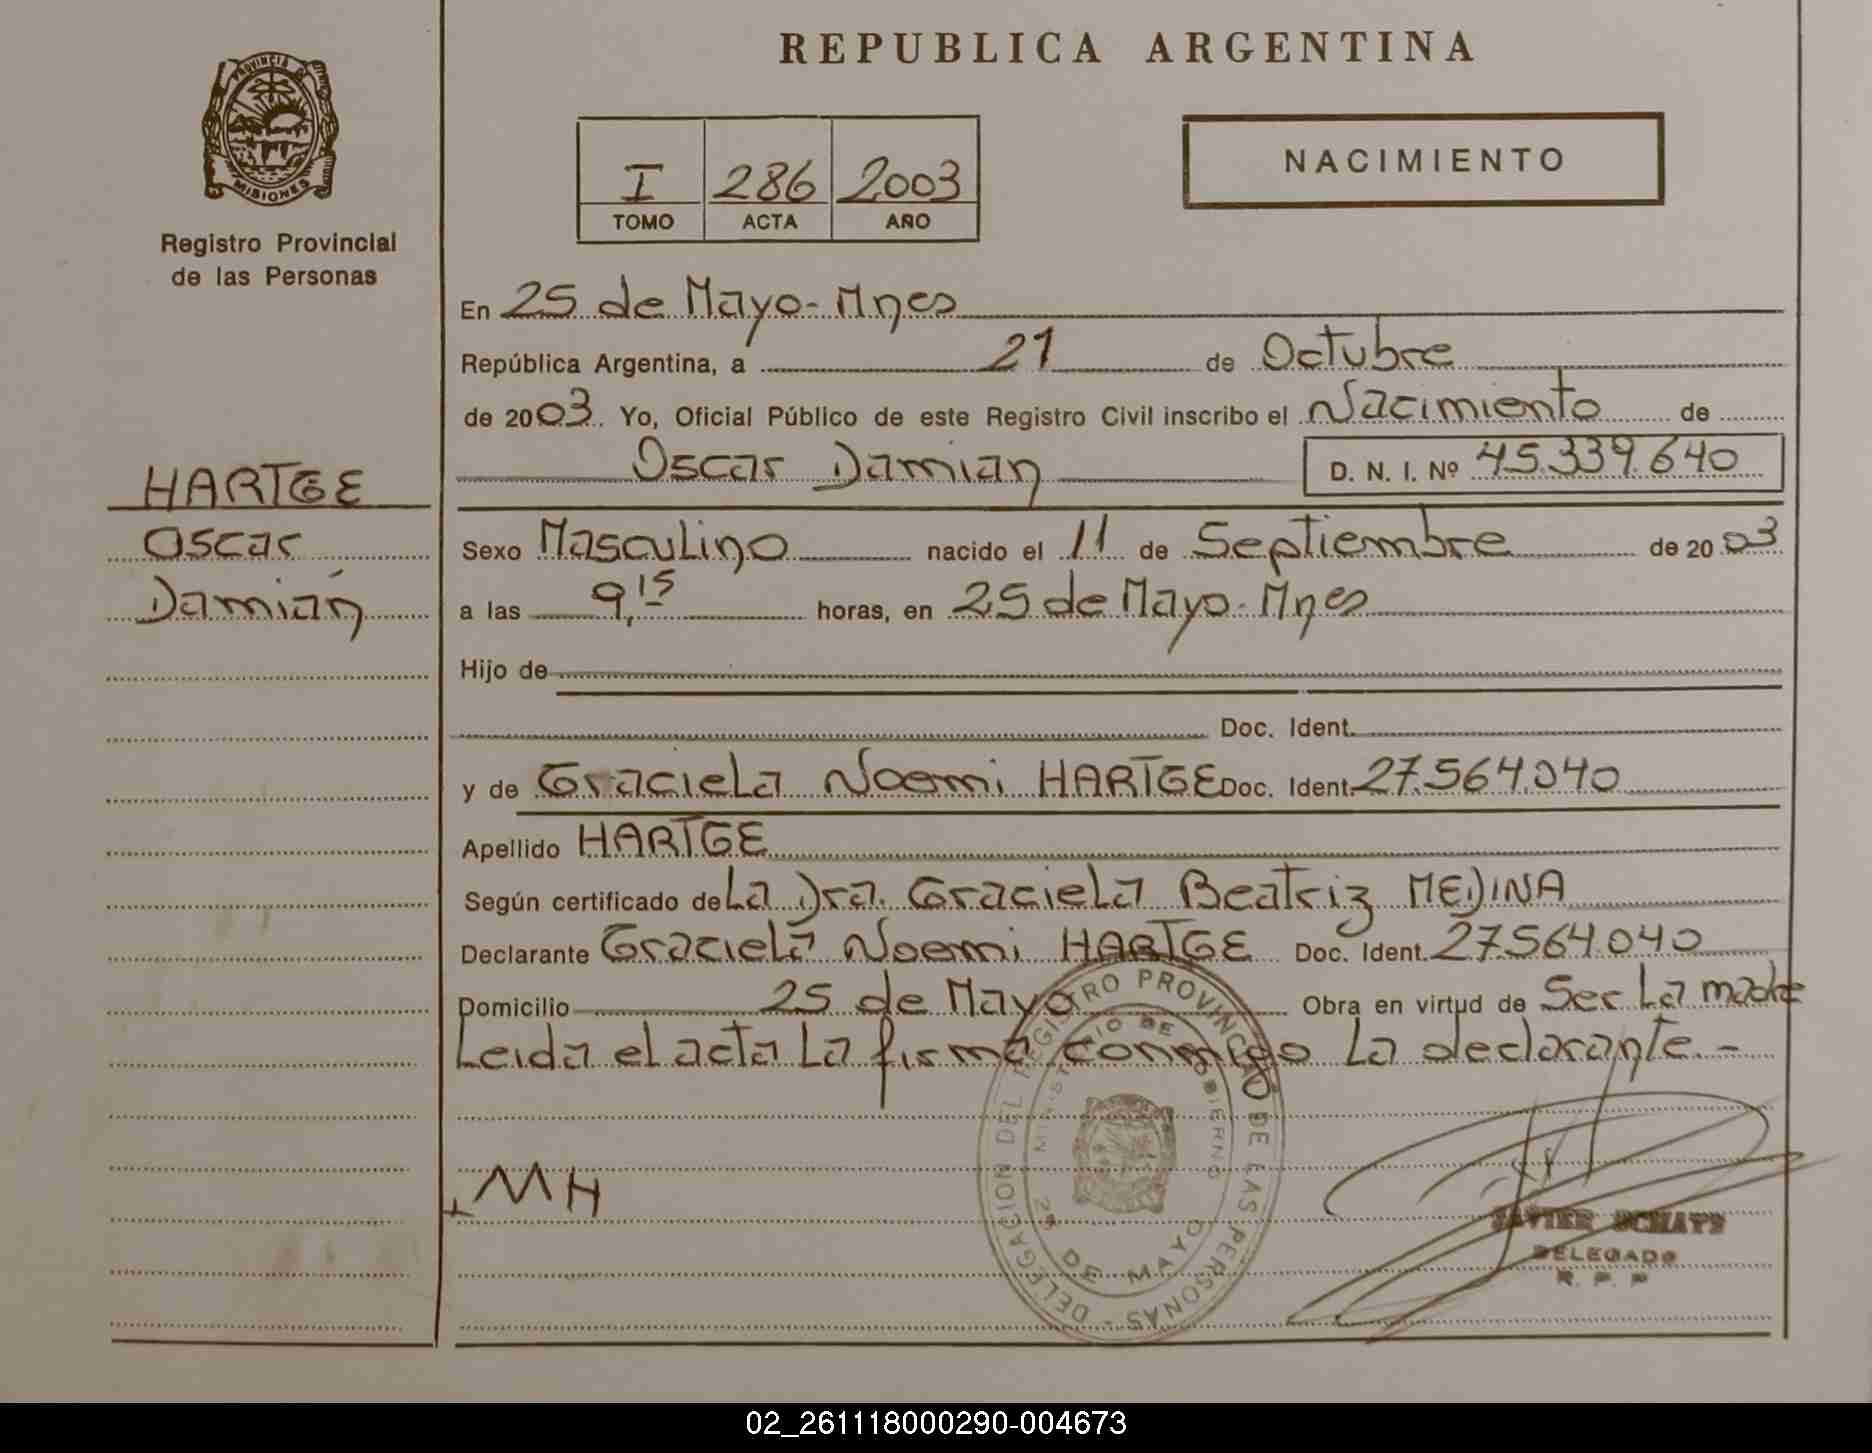 REPUBLICA ARGENTINA
PROVINCIA DE
MISIONES
Registro Provincial
de las Personas
I 286 2003
TOMO ACTA AÑO
NACIMIENTO
En 25 de Mayo - Mnes
República Argentina, a 21 de Octubre
de 2003. Yo, Oficial Público de este Registro Civil inscribo el Nacimiento de
Oscar Damian D. N. I. Nº 45.339.640
HARTGE
Oscar
Damián
Sexo Masculino nacido el 11 de Septiembre de 2003
a las 9,15 horas, en 25 de Mayo - Mnes
Hijo de
Doc. Ident.
y de Graciela Noemi HARTGE Doc. Ident. 27.564.040
Apellido HARTGE
Según certificado de La Dra. Graciela Beatriz MEDINA
Declarante Graciela Noemi HARTGE Doc. Ident. 27.564.040
Domicilio 25 de Mayo Obra en virtud de Ser La madre
Leida el acta La firma conmigo La declarante.-
DELEGACION DEL REGISTRO PROVINCIAL DE LAS PERSONAS -
MINISTERIO DE GOBIERNO
25 DE MAYO
MH
JAVIER
DELEGADO
R. P. P
02_261118000290-004673